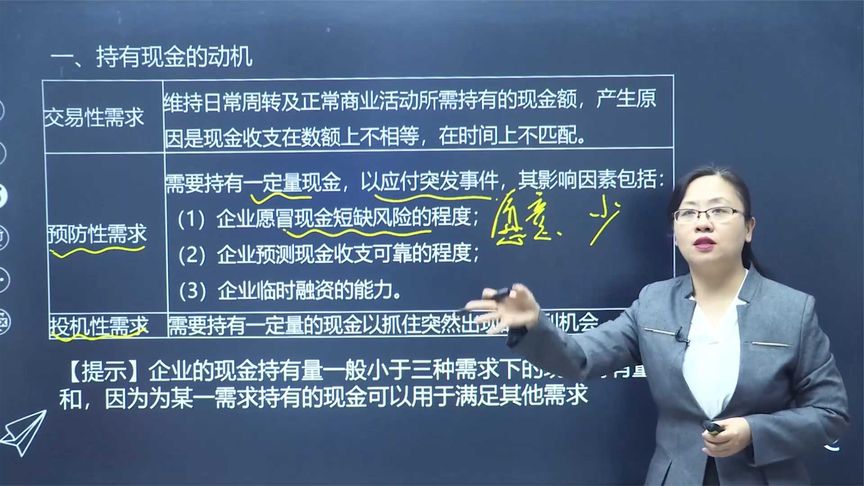 一、持有现金的动机
交易性需求
维持日常周转及正常商业活动所需持有的现金额，产生原
因是现金收支在数额上不相等，在时间上不匹配。
预防性需求
需要持有一定量现金，以应付突发事件，其影响因素包括：
（1）企业愿冒现金短缺风险的程度；
愿意、少
（2）企业预测现金收支可靠的程度；
（3）企业临时融资的能力。
投机性需求
需要持有一定量的现金以抓住突然出现 利机会
【提示】企业的现金持有量一般小于三种需求下的现 有量
和，因为为某一需求持有的现金可以用于满足其他需求